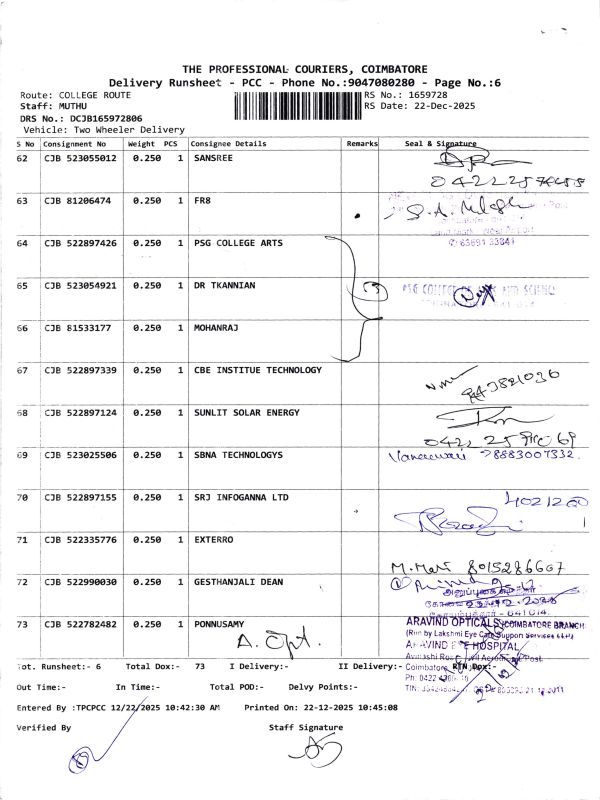 THE PROFESSIONAL COURIERS, COIMBATORE
Delivery Runsheet - PCC - Phone No.:9047080280 - Page No.:6
Route: COLLEGE ROUTE
RS No.: 1659728
Staff: MUTHU
RS Date: 22-Dec-2025
DRS No.: DCJB165972806
Vehicle: Two Wheeler Delivery
S No Consignment No Weight PCS Consignee Details Remarks Seal & Signature
62 CJB 523055012 0.250 1 SANSREE
63 CJB 81206474 0.250 1 FR8
64 CJB 522897426 0.250 1 PSG COLLEGE ARTS
65 CJB 523054921 0.250 1 DR TKANNIAN
PSG COLLEGE OF
66 CJB 81533177 0.250 1 MOHANRAJ
67 CJB 522897339 0.250 1 CBE INSTITUE TECHNOLOGY
68 CJB 522897124 0.250 1 SUNLIT SOLAR ENERGY
69 CJB 523025506 0.250 1 SBNA TECHNOLOGYS
8883007332
70 CJB 522897155 0.250 1 SRJ INFOGANNA LTD
71 CJB 522335776 0.250 1 EXTERRO
M. Mari 8015286607
72 CJB 522990030 0.250 1 GESTHANJALI DEAN
73 CJB 522782482 0.250 1 PONNUSAMY
A. Opt.
ARAVIND OPTICALS (COIMBATORE BRANCH)
(Run by Lakshmi Eye Care Support Services LLP)
ARAVIND EYE HOSPITAL
Tot. Runsheet:- 6 Total Dox:- 73 I Delivery:- II Delivery:- RTN Dox:-
Coimbatore
Out Time:- In Time:- Total POD:- Delvy Points:-
Entered By :TPCPCC 12/22/2025 10:42:30 AM Printed On: 22-12-2025 10:45:08
Verified By Staff Signature